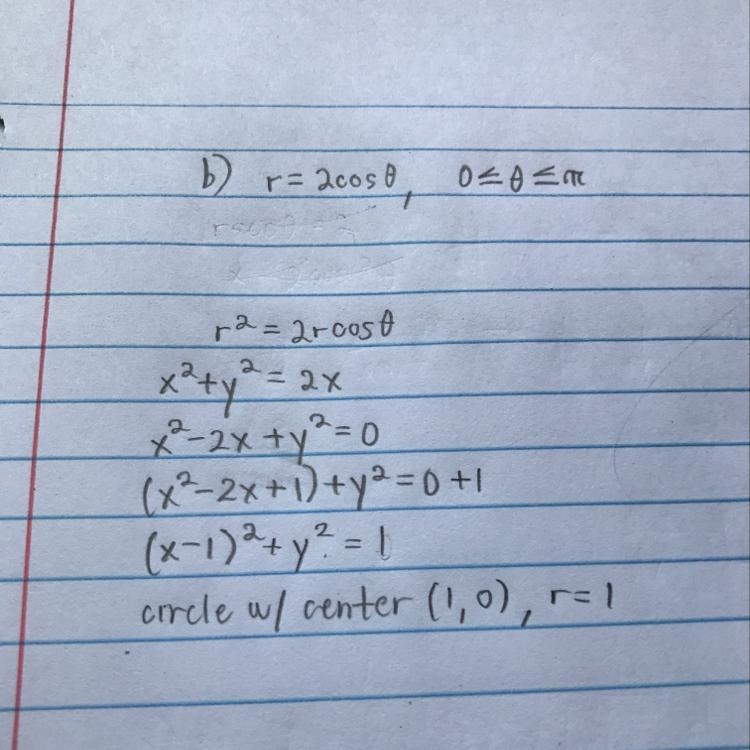 b) r = 2cosθ, 0 ≤ θ ≤ π
r² = 2rcosθ
x² + y² = 2x
x² - 2x + y² = 0
(x² - 2x + 1) + y² = 0 + 1
(x - 1)² + y² = 1
circle w/ center (1, 0), r = 1